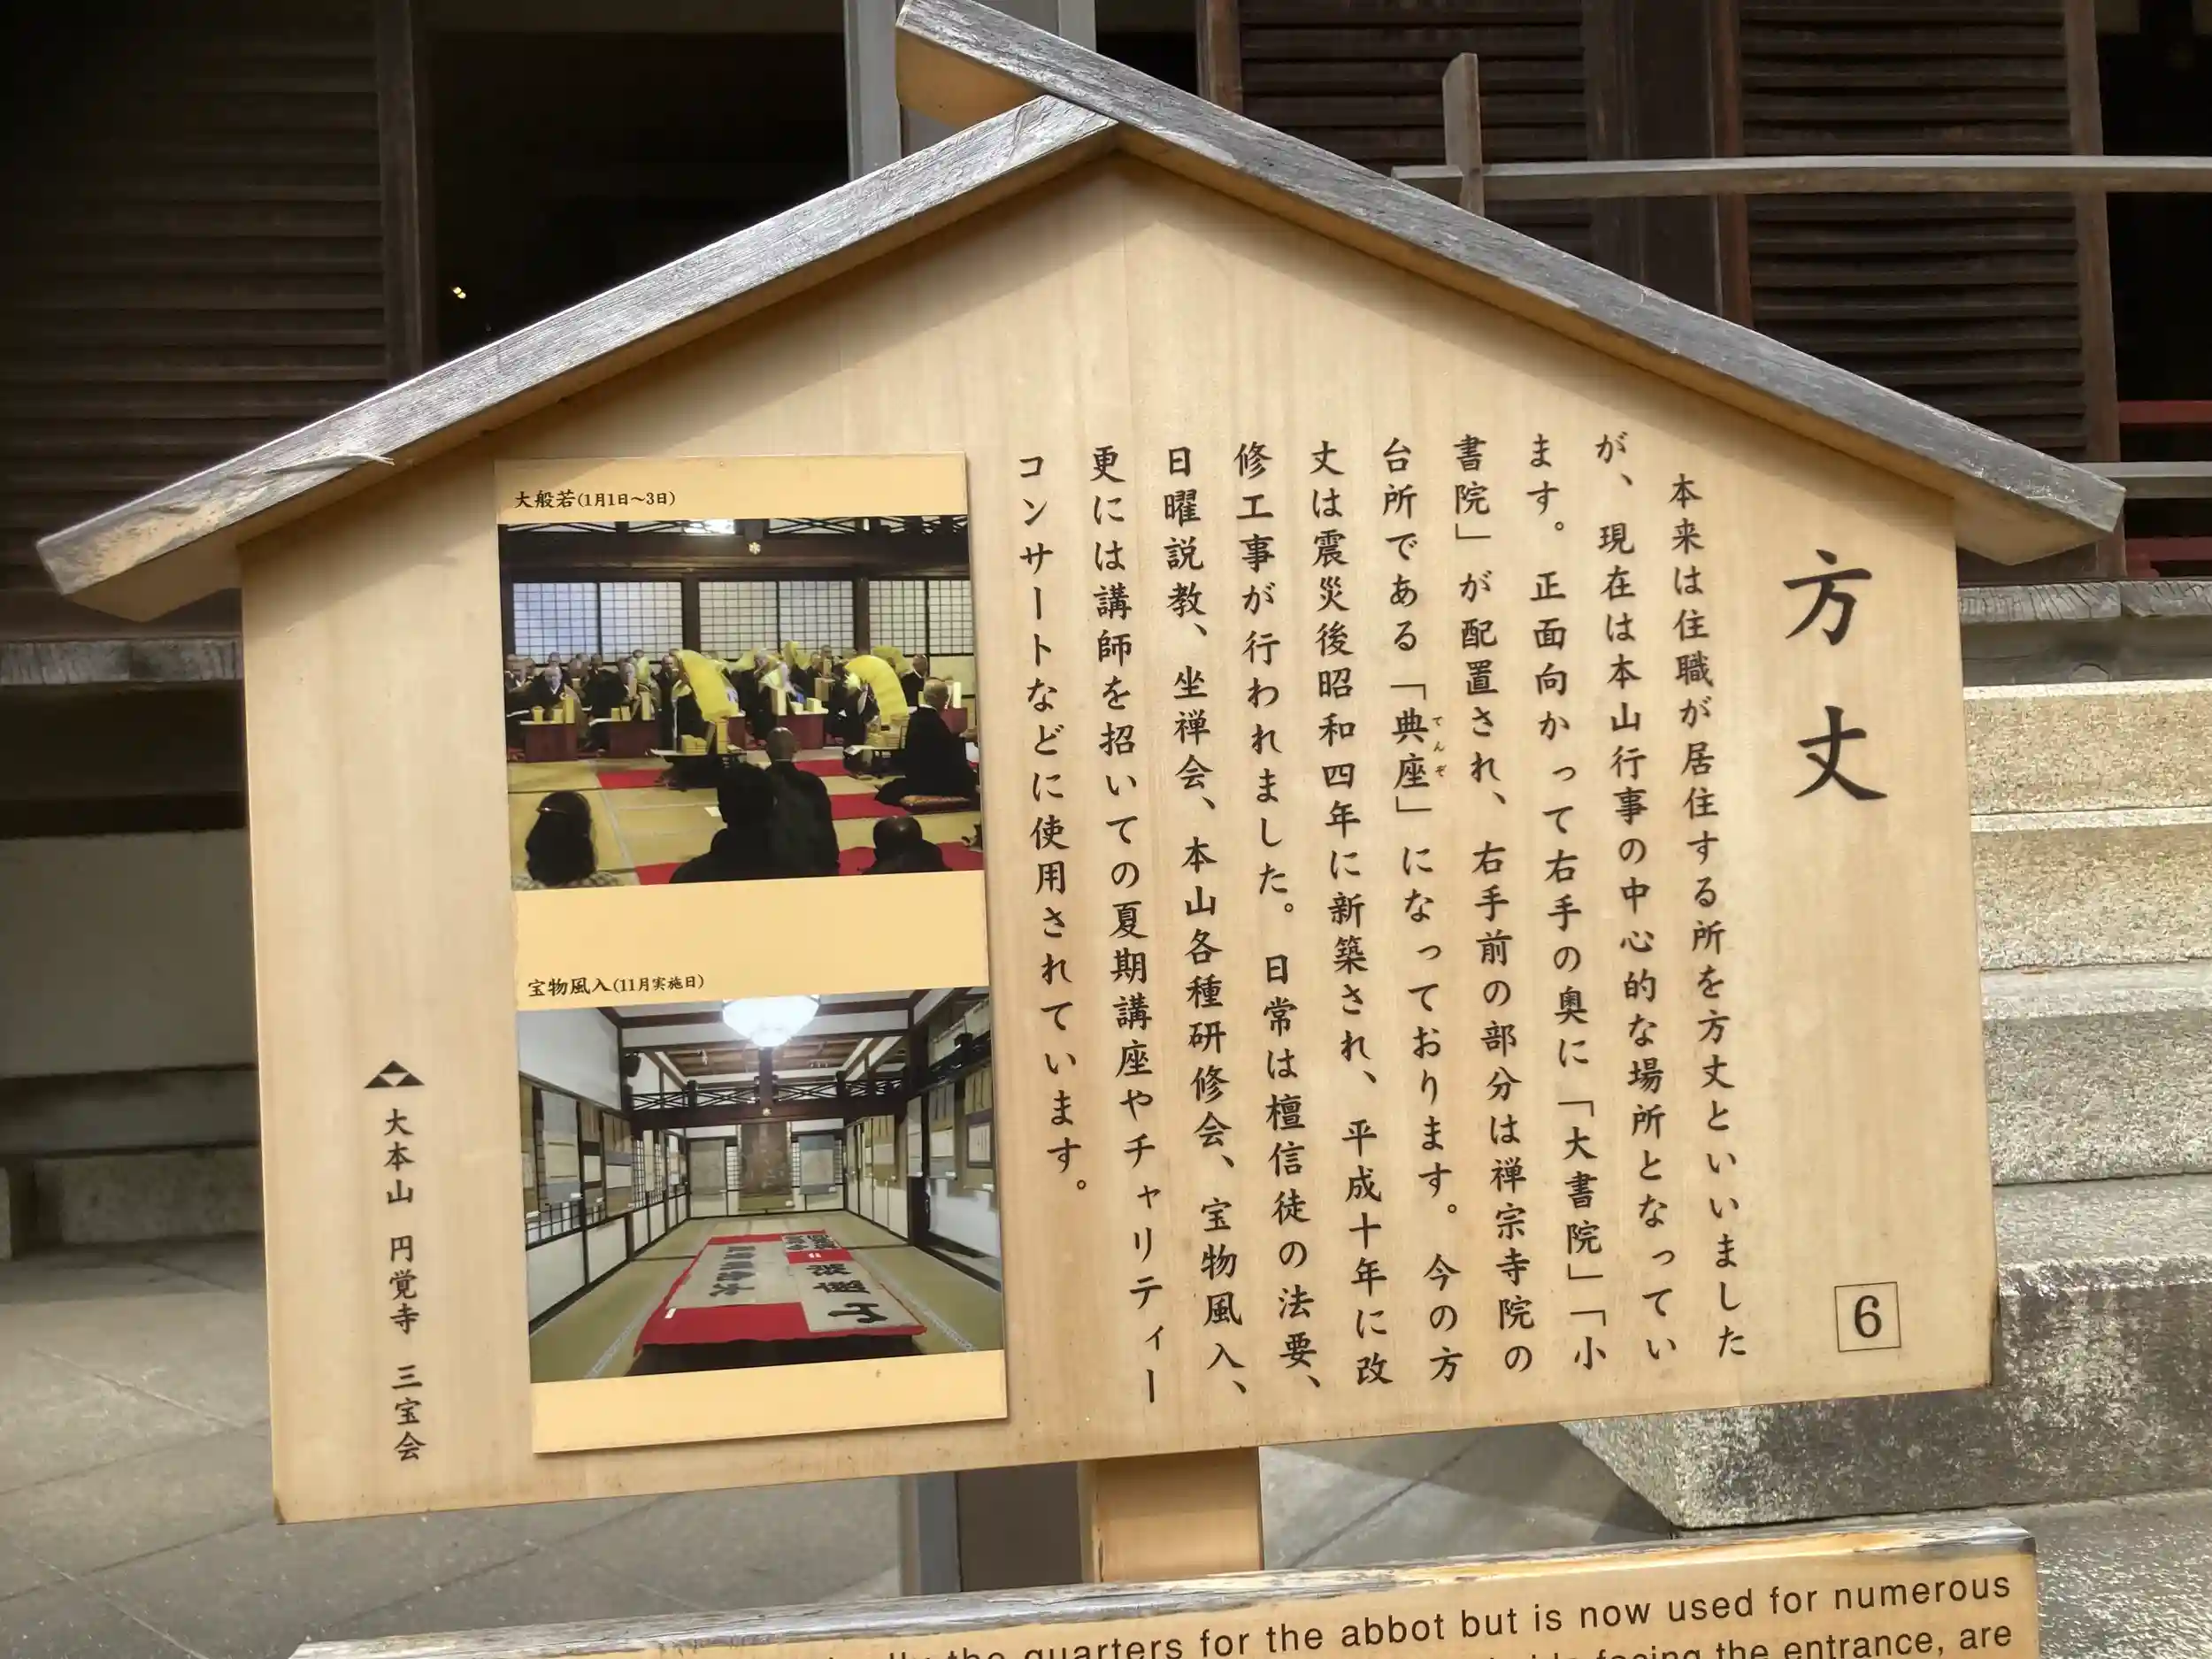 方丈
6
本来は住職が居住する所を方丈といいました
が、現在は本山行事の中心的な場所となってい
ます。正面向かって右手の奥に「大書院」「小
書院」が配置され、右手前の部分は禅宗寺院の
台所である「典座」になっております。今の方
てんぞ
丈は震災後昭和四年に新築され、平成十年に改
修工事が行われました。日常は檀信徒の法要、
日曜説教、坐禅会、本山各種研修会、宝物風入、
更には講師を招いての夏期講座やチャリティー
コンサートなどに使用されています。
大般若(1月1日~3日)
宝物風入(11月実施日)
大本山 円覚寺 三宝会
the quarters for the abbot but is now used for numerous
facing the entrance, are